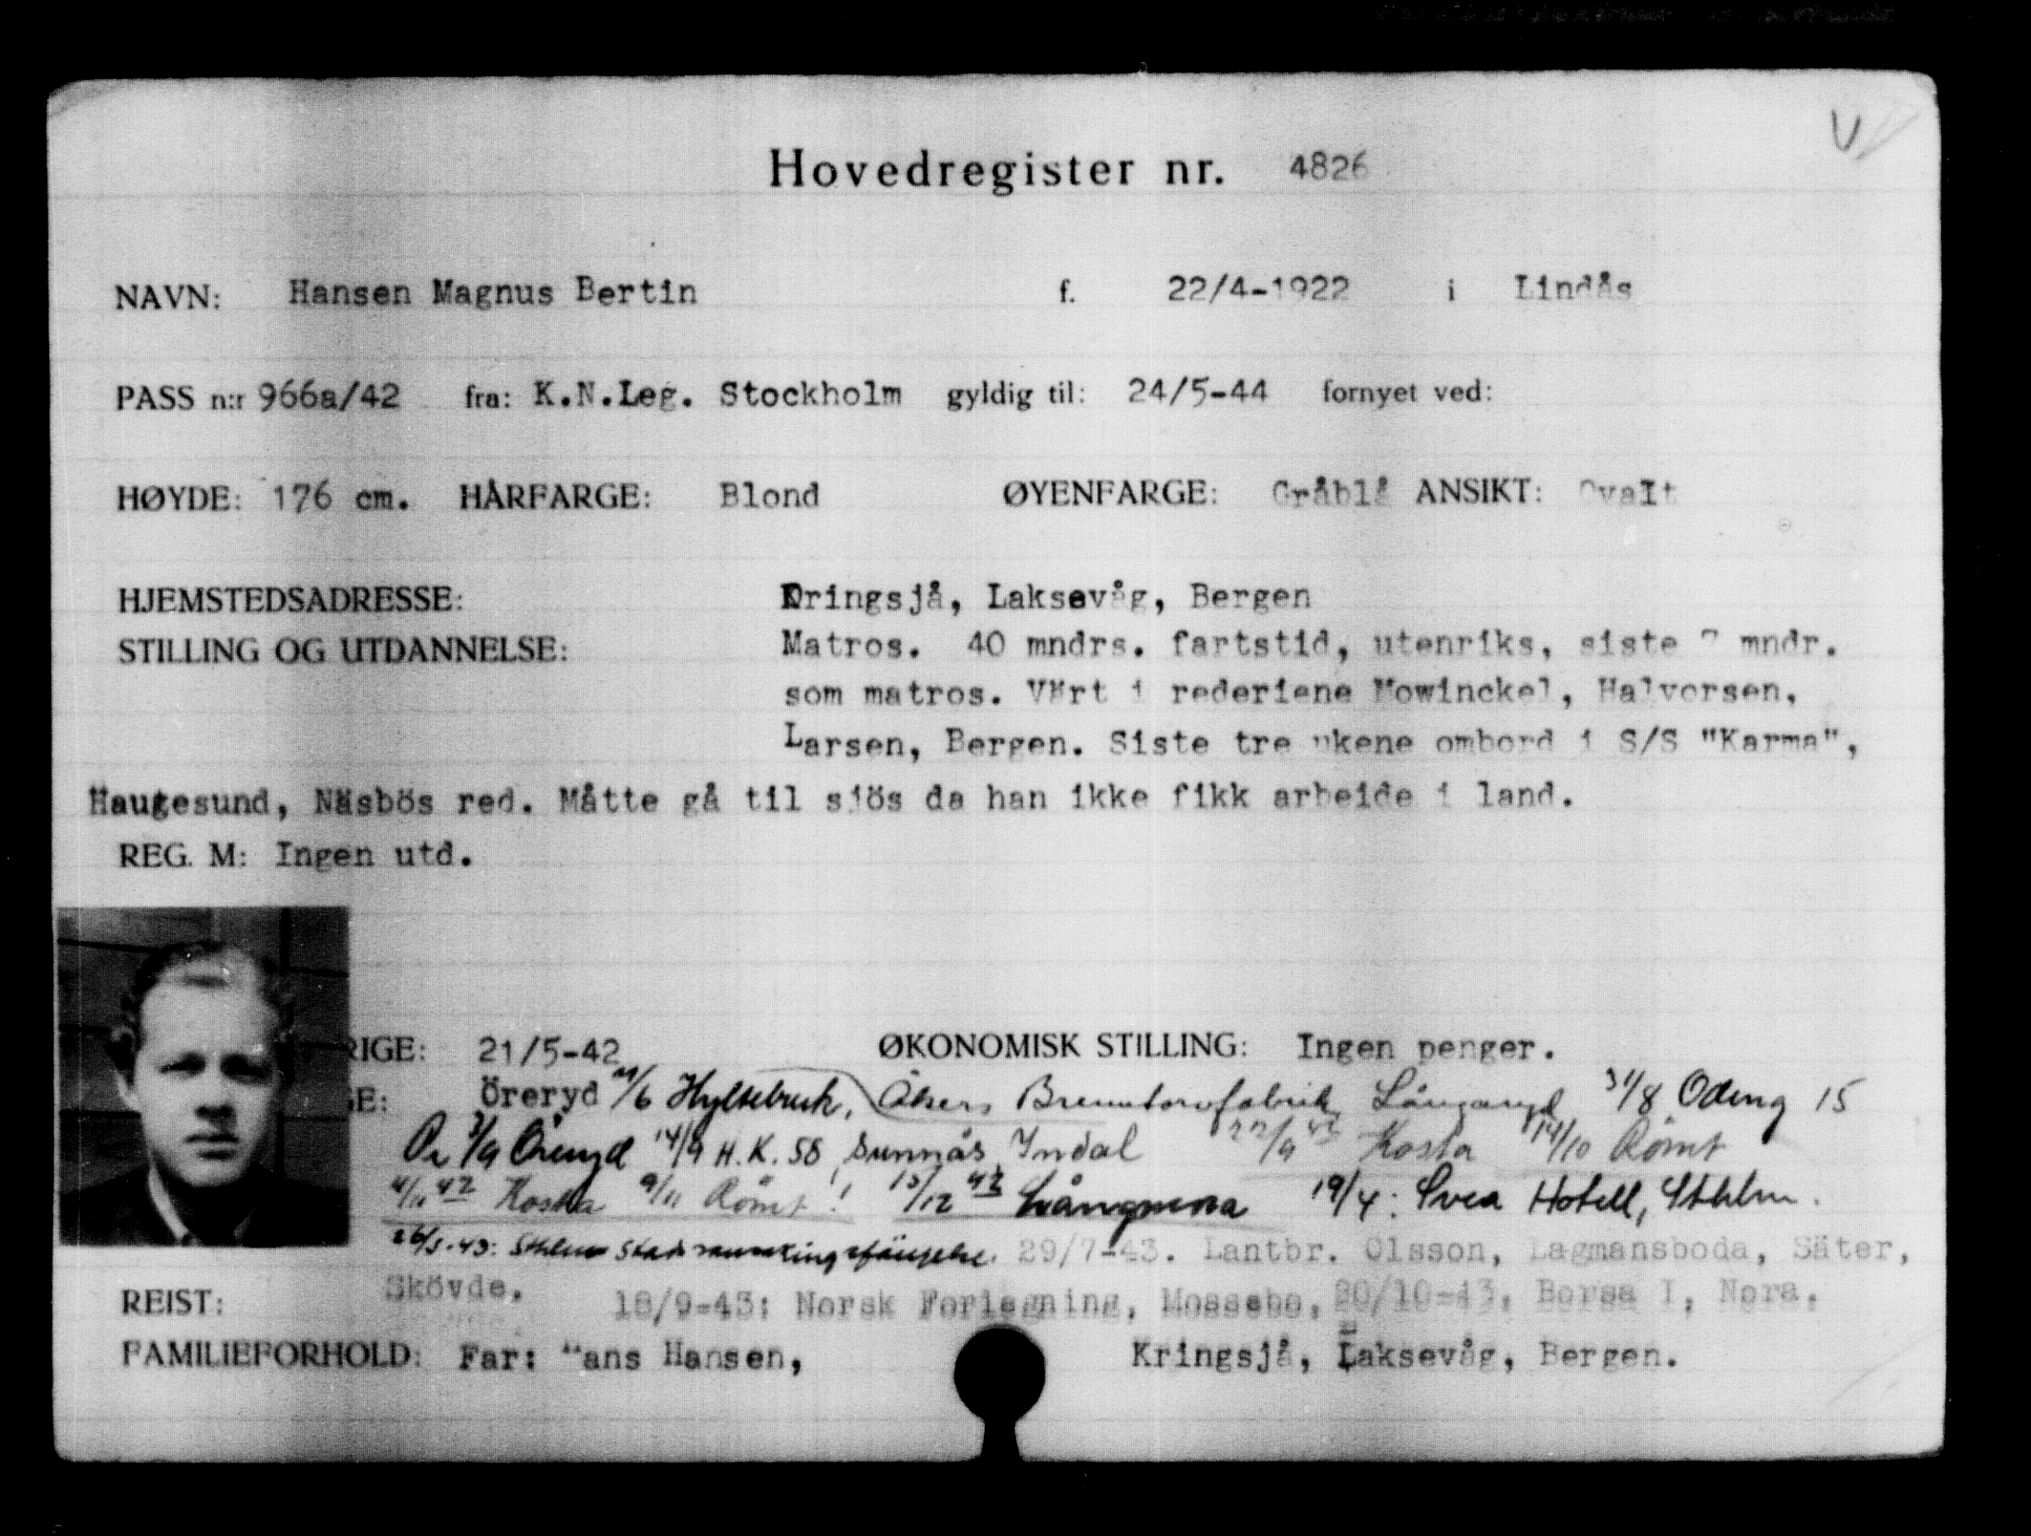 Hovedregister nr. 4826
NAVN: Hansen Magnus Bertin f. 22/4-1922 i Lindås
PASS n:r 966a/42 fra: K.N.Leg. Stockholm gyldig til: 24/5-44 fornyet ved:
HØYDE: 176 cm. HÅRFARGE: Blond ØYENFARGE: Gråblå ANSIKT: Ovalt
HJEMSTEDSADRESSE: Kringsjå, Laksevåg, Bergen
STILLING OG UTDANNELSE: Matros. 40 mndrs. fartstid, utenriks, siste mndr.
som matros. Vært i rederiene Mowinckel, Halvorsen,
Larsen, Bergen. Siste tre ukene ombord i S/S "Karma",
Haugesund, Näsbös red. Måtte gå til sjös da han ikke fikk arbeide i land.
REG. M: Ingen utd.
RIGE: 21/5-42 ØKONOMISK STILLING: Ingen penger.
GE: Öreryd /6 Hyltebruk, 31/8 Odeng 15
Öreryd 14/9 H.K. 58, Sunnås, Indal 22/9 42 Kosta 14/10 Römt
4/11 42 Kosta 9/11 Römt! 15/12 42 Långmora 19/4: Svea Hotell, Sthlm.
26/5-43: Sthlms 29/7-43. Lantbr. Olsson, Lagmansboda, Säter,
Skövde.
REIST: 18/9-43: Norsk Forlegning, Mossebo, 20/10-43, Borsa I, Nora.
FAMILIEFORHOLD: Far: Hans Hansen, Kringsjå, Laksevåg, Bergen.